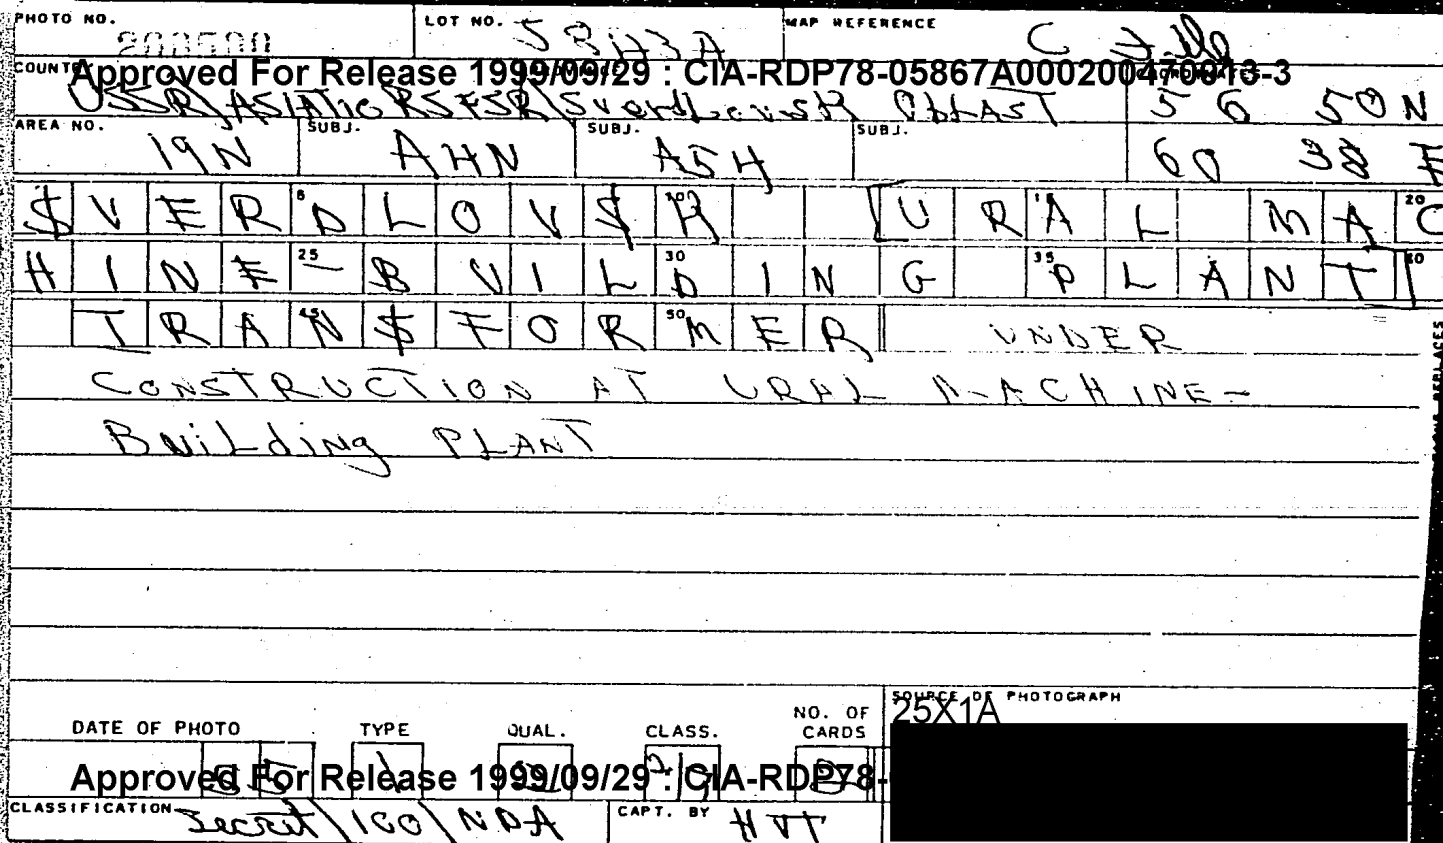 PHOTO NO. LOT NO. MAP REFERENCE
Approved For Release 1999/09/29 : CIA-RDP78-05867A000200470013-3
COUNTRY USSR/ASIATIC RSFSR/Sverdlovsk OBLAST 56 50 N
AREA NO. 19N SUBJ. AHN SUBJ. A5H SUBJ. 60 38 E
SVERDLOVSK [URAL MAC
HINE-BUILDING PLANT]
TRANSFORMER UNDER
CONSTRUCTION AT URAL MACHINE-
Building PLANT
SOURCE OF PHOTOGRAPH
25X1A
DATE OF PHOTO TYPE QUAL. CLASS. NO. OF CARDS
Approved For Release 1999/09/29 : CIA-RDP78-
CLASSIFICATION Secret/ICO/NDA CAPT. BY